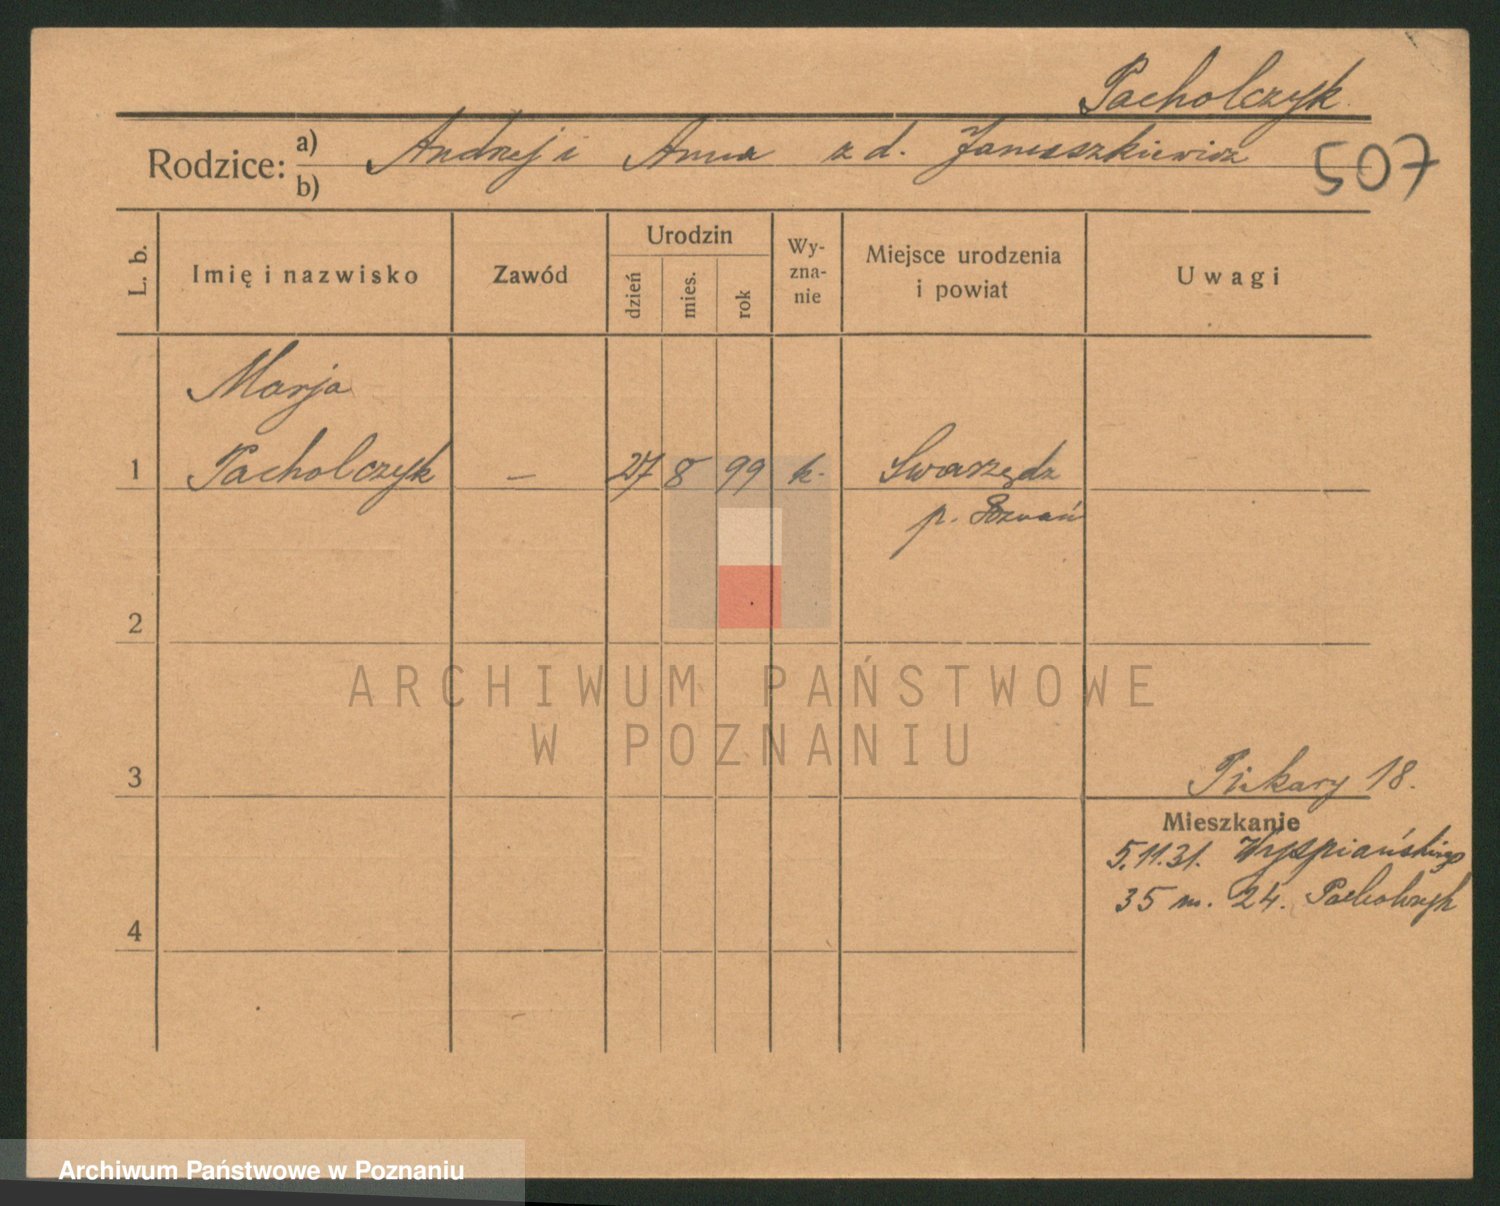 Pacholczyk.
Rodzice: a) Andrzej i Anna z d. Januszkiewicz
b)
507
L. b. Imię i nazwisko Zawód Urodzin dzień mies. rok Wy- zna- nie Miejsce urodzenia i powiat Uwagi
Marja
1 Pacholczyk – 27 8 99 k. Swarzędz
p. Poznań
2
ARCHIWUM PAŃSTWOWE
W POZNANIU
3 Piekary 18.
Mieszkanie
5.11.31. Wyspiańskiego
35 m. 24. Pacholczyk
4
Archiwum Państwowe w Poznaniu